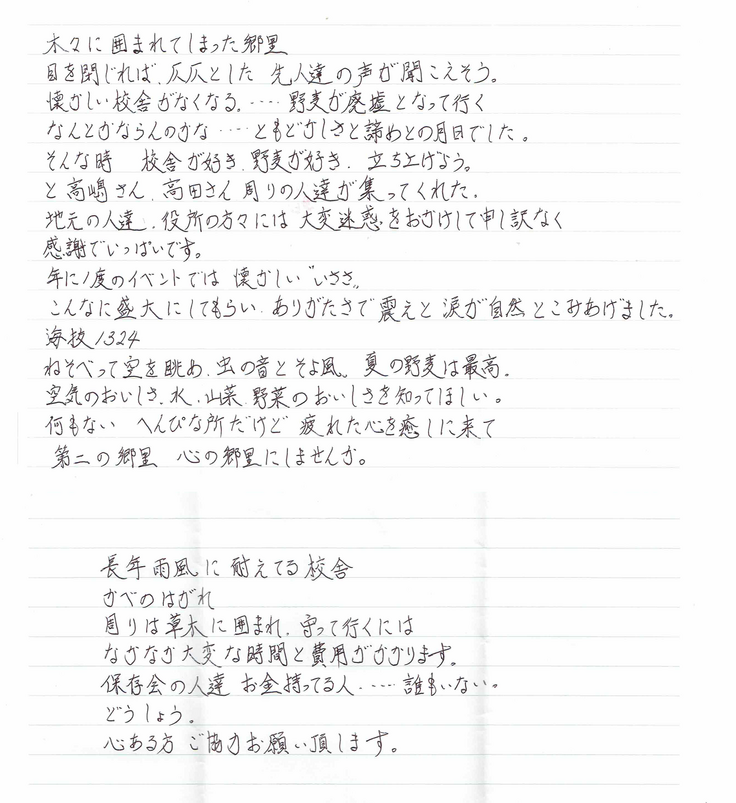 木々に囲まれてしまった郷里
目を閉じれば、仄仄とした 先人達の声が聞こえそう。
懐かしい校舎がなくなる、‥‥ 野麦が廃墟となって行く
なんとかならんのかな ‥‥ ともどかしさと諦めとの月日でした。
そんな時 校舎が好き、野麦が好き、立ち上げよう。
と高嶋さん、高田さん 周りの人達が集ってくれた、
地元の人達、役所の方々には 大変迷惑をおかけして申し訳なく
感謝でいっぱいです。
年に1度のイベントでは 懐かしい〝いささ〟
こんなに盛大にしてもらい、ありがたさで震えと涙が自然とこみあげました。
海抜1324
ねそべって空を眺め、虫の音とそよ風、夏の野麦は最高。
空気のおいしさ、水、山菜、野菜のおいしさを知ってほしい。
何もない へんぴな所だけど 疲れた心を癒しに来て
第二の郷里 心の郷里にしませんか。
長年雨風に耐えてる校舎
かべのはがれ
周りは草木に囲まれ、守って行くには
なかなか大変な時間と費用がかかります。
保存会の人達 お金持ってる人‥‥誰もいない。
どうしょう。
心ある方 ご協力お願い頂します。